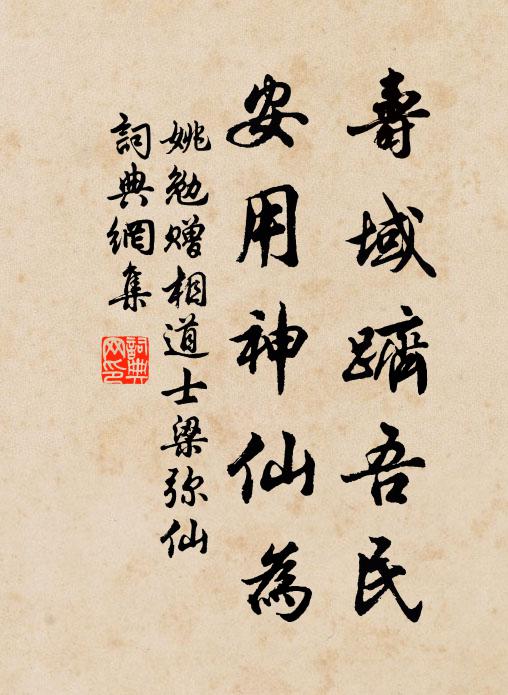 壽域躋吾民
安用神仙為
姚勉赠相道士梁弥仙
詞典網集
詞典網印